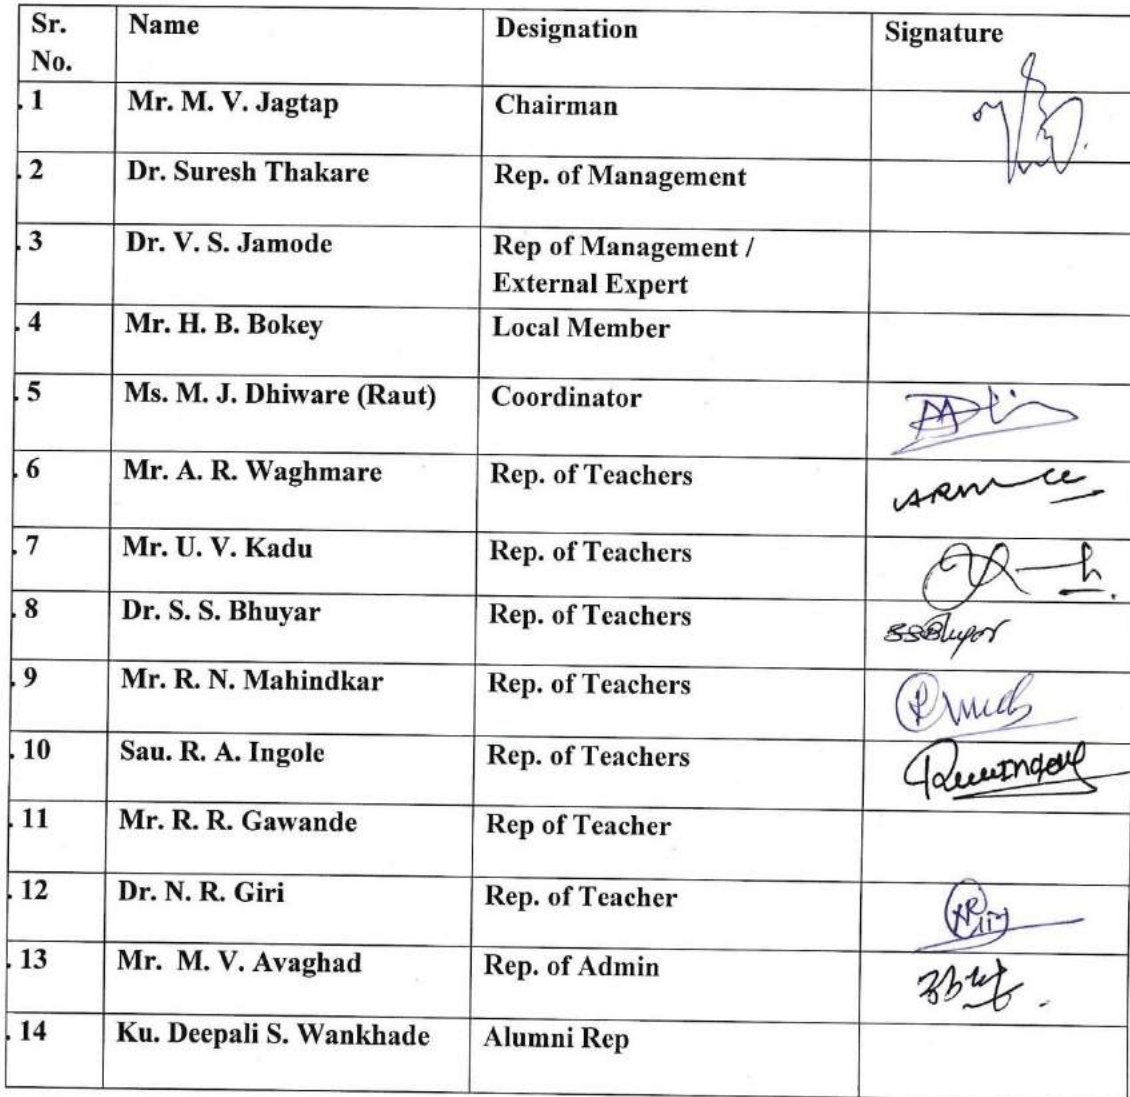 Sr. Name Designation Signature
No.
. 1 Mr. M. V. Jagtap Chairman
. 2 Dr. Suresh Thakare Rep. of Management
. 3 Dr. V. S. Jamode Rep of Management /
External Expert
. 4 Mr. H. B. Bokey Local Member
. 5 Ms. M. J. Dhiware (Raut) Coordinator
. 6 Mr. A. R. Waghmare Rep. of Teachers
. 7 Mr. U. V. Kadu Rep. of Teachers
. 8 Dr. S. S. Bhuyar Rep. of Teachers SSBhuyar
. 9 Mr. R. N. Mahindkar Rep. of Teachers
. 10 Sau. R. A. Ingole Rep. of Teachers
. 11 Mr. R. R. Gawande Rep of Teacher
. 12 Dr. N. R. Giri Rep. of Teacher
. 13 Mr. M. V. Avaghad Rep. of Admin
. 14 Ku. Deepali S. Wankhade Alumni Rep